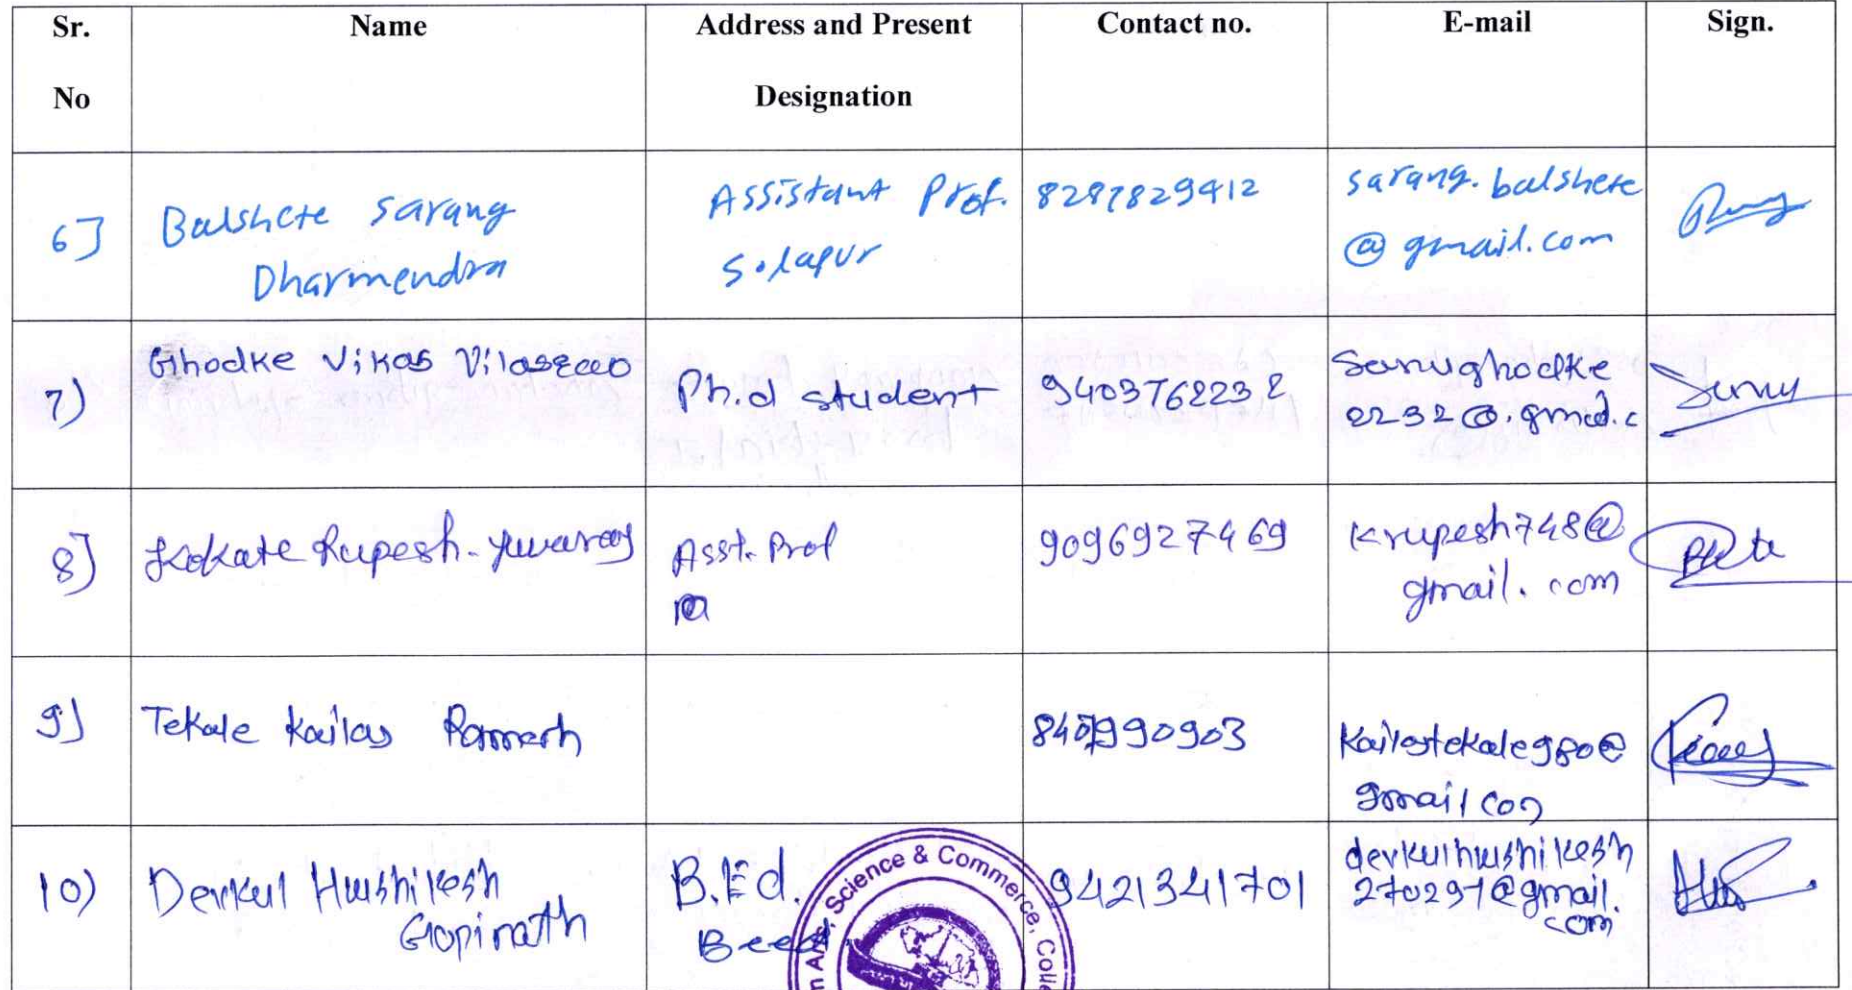 Sr. No
Name
Address and Present Designation
Contact no.
E-mail
Sign.
6]
Balshete Sarang
Dharmendra
Assistant Prof.
Solapur
8287829412
sarang.balshete
@gmail.com
7)
Ghodke Vikas Vilasrao
Ph.d student
9403762232
Sanughodke
2232@.gmail.c
8]
Kokate Rupesh-yuvaraj
Asst. Prof
9096927469
krupesh748@
gmail.com
9]
Tekale Kailas Ramesh
847990903
Kailastekale980@
gmail com
10)
Devkul Hrushikesh
Gopinath
B.Ed.
Beed
9421341701
devkulhrushikesh
270297@gmail.
com
Science & Commerce,